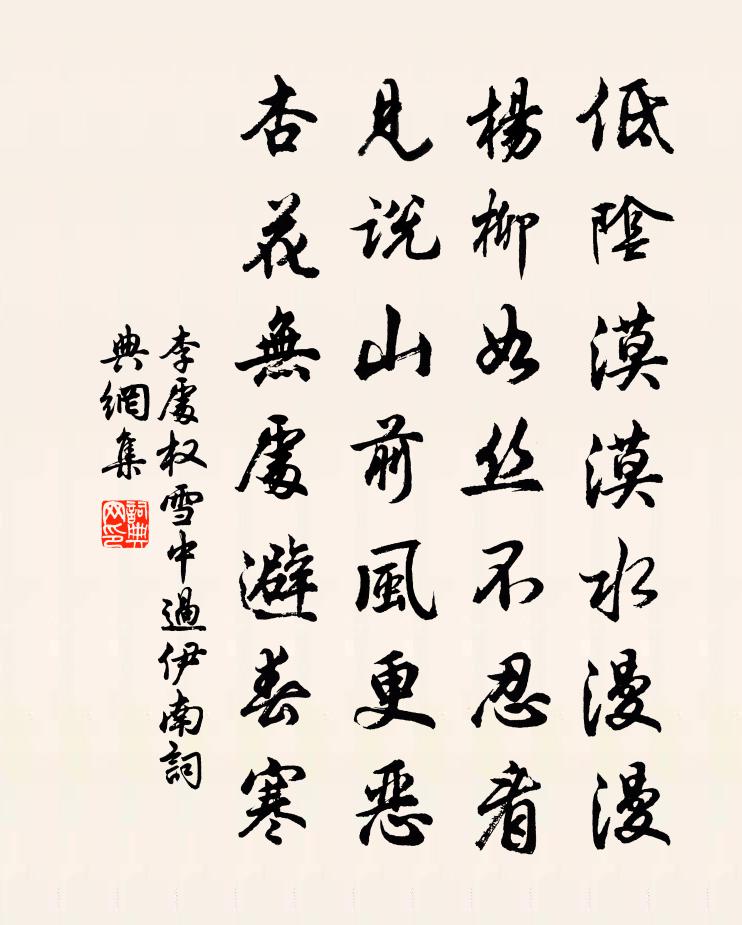 低陰漠漠水漫漫
楊柳如丝不忍看
見説山前風更恶
杏花無處避春寒
李處权雪中過伊南詞
典網集
詞典网印